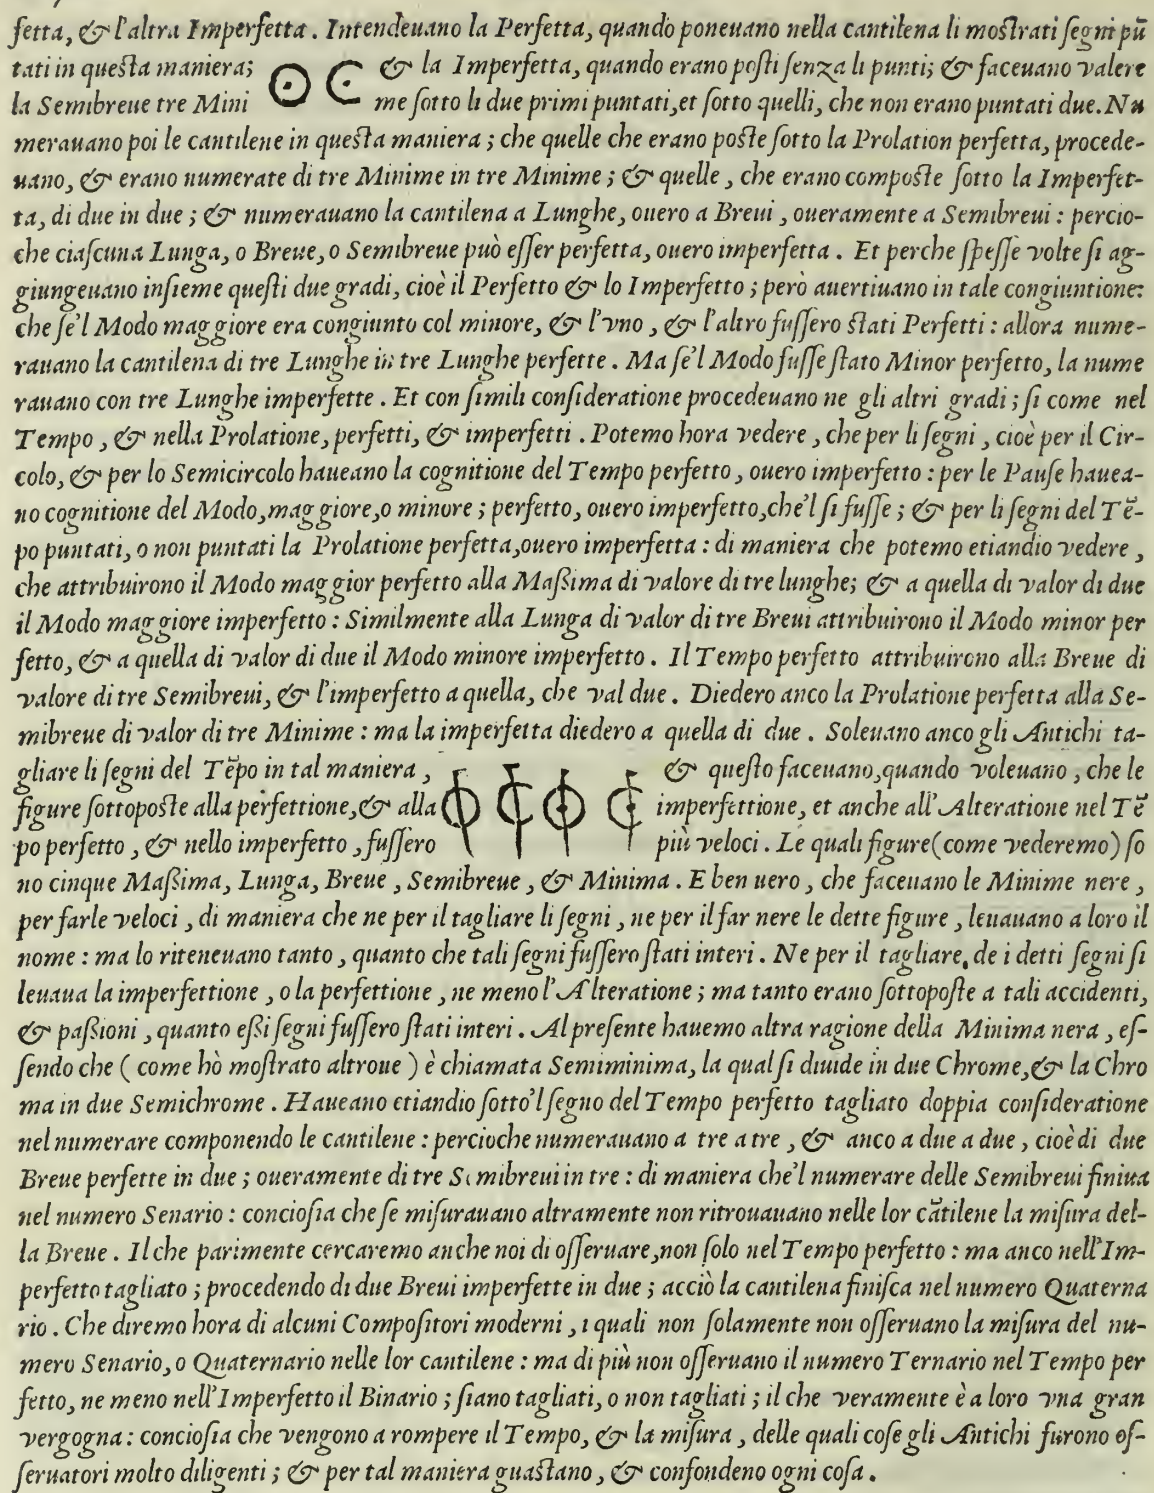 fetta, & l'altra Imperfetta. Intendeuano la Perfetta, quando poneuano nella cantilena li moſtrati ſegni pũ
tati in queſta maniera; & la Imperfetta, quando erano poſti ſenza li punti; & faceuano valere
la Semibreue tre Mini me ſotto li due primi puntati, et ſotto quelli, che non erano puntati due. Nu
merauano poi le cantilene in queſta maniera; che quelle che erano poſte ſotto la Prolation perfetta, procede-
uano, & erano numerate di tre Minime in tre Minime; & quelle, che erano compoſte ſotto la Imperfet-
ta, di due in due; & numerauano la cantilena a Lunghe, ouero a Breui, oueramente a Semibreui: percio-
che ciaſcuna Lunga, o Breue, o Semibreue può eſſer perfetta, ouero imperfetta. Et perche ſpeſſe volte ſi ag-
giungeuano inſieme queſti due gradi, cioè il Perfetto & lo Imperfetto; però auertiuano in tale congiuntione:
che ſe'l Modo maggiore era congiunto col minore, & l'vno, & l'altro fuſſero ſtati Perfetti: allora nume-
rauano la cantilena di tre Lunghe in tre Lunghe perfette. Ma ſe'l Modo fuſſe ſtato Minor perfetto, la nume
rauano con tre Lunghe imperfette. Et con ſimili conſideratione procedeuano ne gli altri gradi; ſi come nel
Tempo, & nella Prolatione, perfetti, & imperfetti. Potemo hora vedere, che per li ſegni, cioè per il Cir-
colo, & per lo Semicircolo haueano la cognitione del Tempo perfetto, ouero imperfetto: per le Pauſe hauea-
no cognitione del Modo, maggiore, o minore; perfetto, ouero imperfetto, che'l ſi fuſſe; & per li ſegni del Tẽ-
po puntati, o non puntati la Prolatione perfetta, ouero imperfetta: di maniera che potemo etiandio vedere,
che attribuirono il Modo maggior perfetto alla Maßima di valore di tre lunghe; & a quella di valor di due
il Modo maggiore imperfetto: Similmente alla Lunga di valor di tre Breui attribuirono il Modo minor per
fetto, & a quella di valor di due il Modo minore imperfetto. Il Tempo perfetto attribuirono alla Breue di
valore di tre Semibreui, & l'imperfetto a quella, che val due. Diedero anco la Prolatione perfetta alla Se-
mibreue di valor di tre Minime: ma la imperfetta diedero a quella di due. Soleuano anco gli Antichi ta-
gliare li ſegni del Tẽpo in tal maniera, & queſto faceuano, quando voleuano, che le
figure ſottopoſte alla perfettione, & alla imperfettione, et anche all'Alteratione nel Tẽ
po perfetto, & nello imperfetto, fuſſero più veloci. Le quali figure (come vederemo) ſo
no cinque Maßima, Lunga, Breue, Semibreue, & Minima. E ben uero, che faceuano le Minime nere,
per farle veloci, di maniera che ne per il tagliare li ſegni, ne per il far nere le dette figure, leuauano a loro il
nome: ma lo riteneuano tanto, quanto che tali ſegni fuſſero ſtati interi. Ne per il tagliare, de i detti ſegni ſi
leuaua la imperfettione, o la perfettione, ne meno l'Alteratione; ma tanto erano ſottopoſte a tali accidenti,
& paßioni, quanto eßi ſegni fuſſero ſtati interi. Al preſente hauemo altra ragione della Minima nera, eſ-
ſendo che (come hò moſtrato altroue) è chiamata Semiminima, la qual ſi diuide in due Chrome, & la Chro
ma in due Semichrome. Haueano etiandio ſotto'l ſegno del Tempo perfetto tagliato doppia conſideratione
nel numerare componendo le cantilene: percioche numerauano a tre a tre, & anco a due a due, cioè di due
Breue perfette in due; oueramente di tre Semibreui in tre: di maniera che'l numerare delle Semibreui finiua
nel numero Senario: concioſia che ſe miſurauano altramente non ritrouauano nelle lor cãtilene la miſura del-
la Breue. Il che parimente cercaremo anche noi di oſſeruare, non ſolo nel Tempo perfetto: ma anco nell'Im-
perfetto tagliato; procedendo di due Breui imperfette in due; acciò la cantilena finiſca nel numero Quaterna
rio. Che diremo hora di alcuni Compoſitori moderni, i quali non ſolamente non oſſeruano la miſura del nu-
mero Senario, o Quaternario nelle lor cantilene: ma di più non oſſeruano il numero Ternario nel Tempo per
fetto, ne meno nell'Imperfetto il Binario; ſiano tagliati, o non tagliati; il che veramente è a loro vna gran
vergogna: concioſia che vengono a rompere il Tempo, & la miſura, delle quali coſe gli Antichi furono oſ-
ſeruatori molto diligenti; & per tal maniera guaſtano, & confondeno ogni coſa.